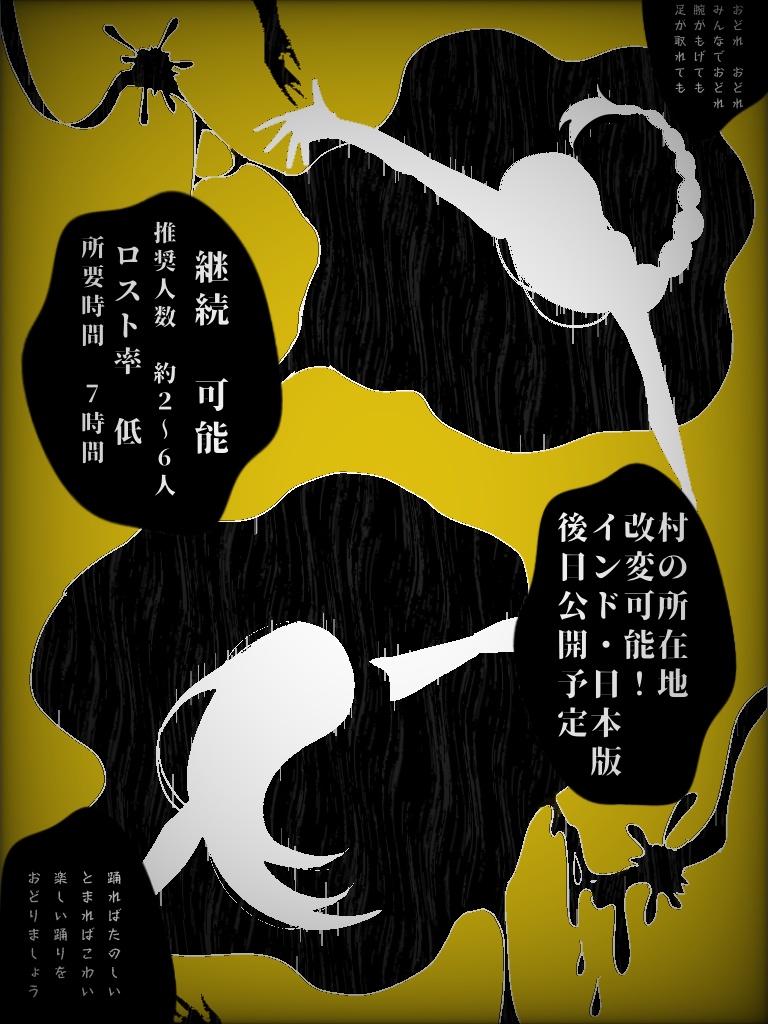 おどれ　おどれ
みんなでおどれ
腕がもげても
足が取れても
継続　可能
推奨人数　約2～6人
ロスト率　低
所要時間　7時間
村の所在地
改変可能！
インド・日本版
後日公開予定
踊ればたのしい
とまればこわい
楽しい踊りを
おどりましょう